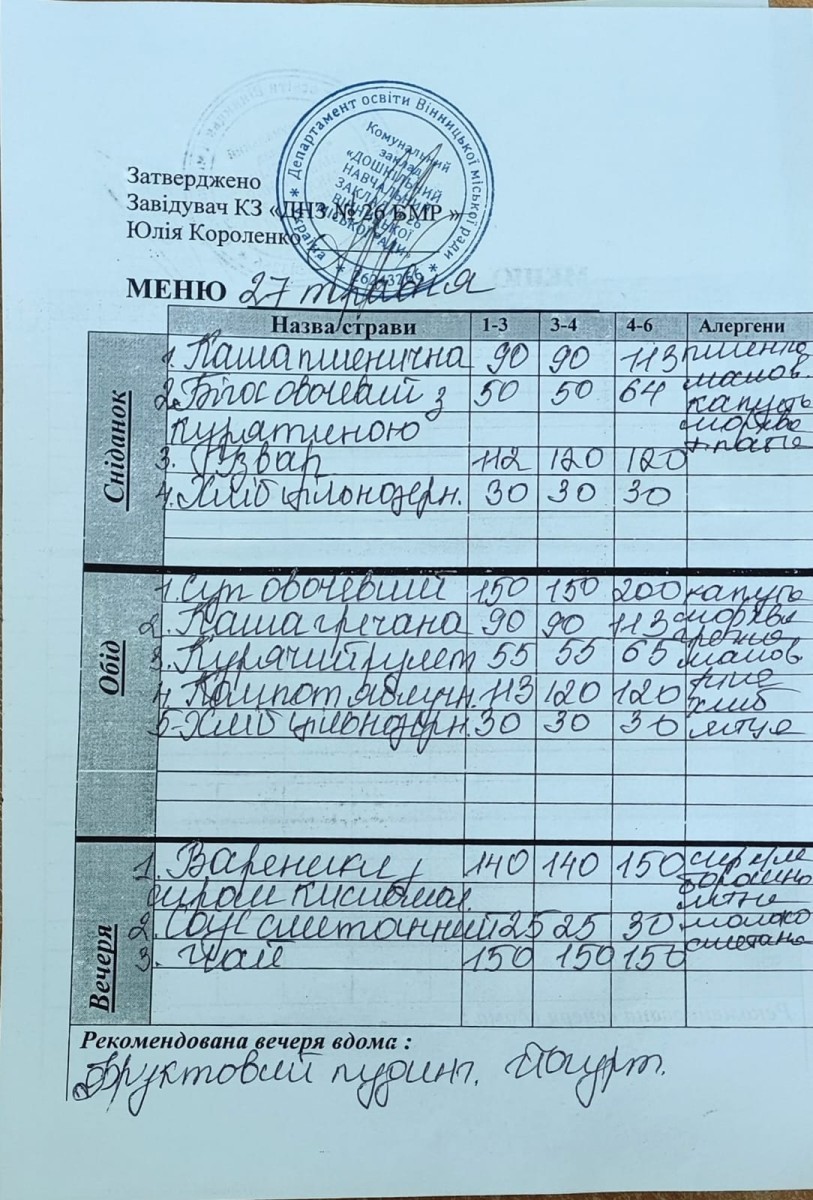 Департамент освіти Вінницької міської ради
Україна
Комунальний
заклад
«ДОШКІЛЬНИЙ
НАВЧАЛЬНИЙ
ЗАКЛАД № 26
ВІННИЦЬКОЇ
МІСЬКОЇ РАДИ»
Затверджено
Завідувач КЗ «ДНЗ № 26 ВМР »
Юлія Короленко
МЕНЮ 27 травня
Назва страви 1-3 3-4 4-6 Алергени
Сніданок
1. Каша пшенична 90 90 113 пшениц
2. Бігос овочевий з 50 50 64 капуста
курятиною морква
3. Узвар 112 120 120
4. Хліб цільнозерн. 30 30 30
Обід
1. Суп овочевий 150 150 200 капуста
2. Каша гречана 90 90 113 морква
3. Курячий рулет 55 55 65
4. Компот яблучн. 113 120 120 хліб
5. Хліб цільнозерн. 30 30 30 яйця
Вечеря
1. Вареники з 140 140 150
сиром кисломол. борошно
2. Соус сметанний 25 25 30 молоко
3. Чай 150 150 150 сметана
Рекомендована вечеря вдома :
Фруктовий пудинг. Йогурт.